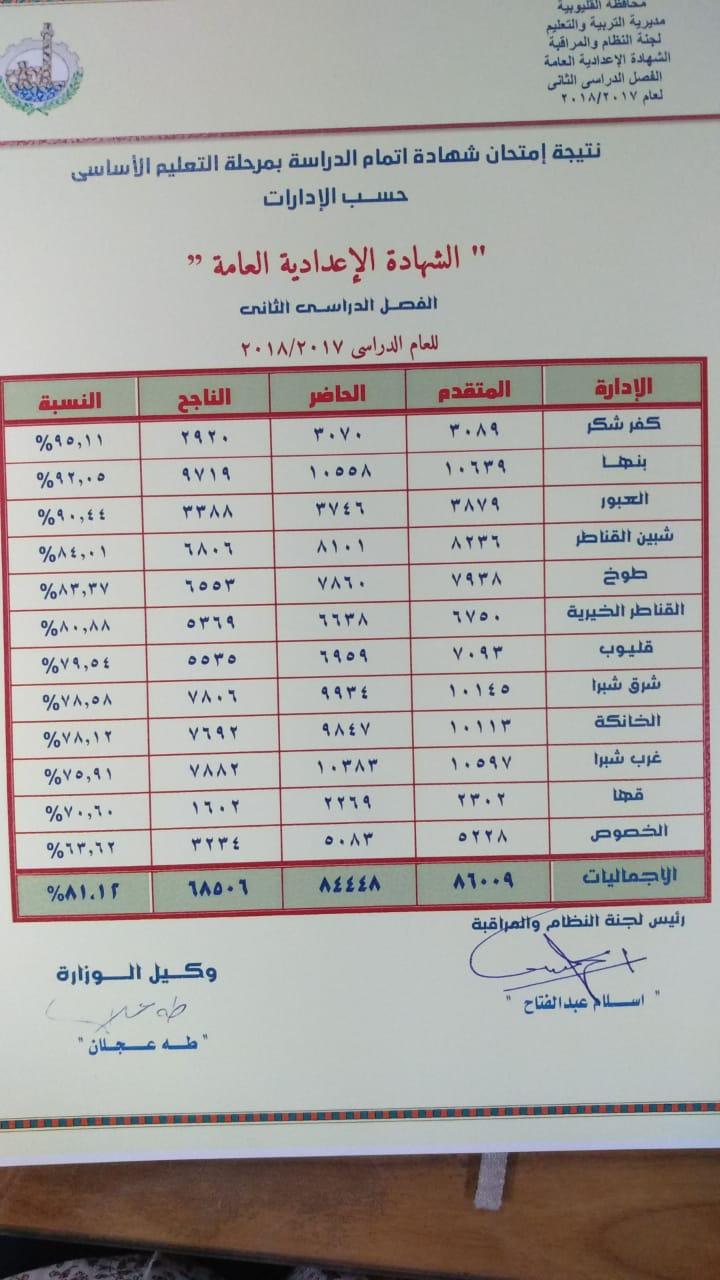 محافظة القليوبية
مديرية التربية والتعليم
لجنة النظام والمراقبة
الشهادة الإعدادية العامة
الفصل الدراسى الثانى
لعام ٢٠١٨/٢٠١٧
نتيجة إمتحان شهادة اتمام الدراسة بمرحلة التعليم الأساسى
حسب الإدارات
" الشهادة الإعدادية العامة "
الفصل الدراسى الثانى
للعام الدراسى ٢٠١٨/٢٠١٧
الإدارة المتقدم الحاضر الناجح النسبة
كفر شكر ٣٠٨٩ ٣٠٧٠ ٢٩٢٠ ٩٥,١١%
بنها ١٠٦٣٩ ١٠٥٥٨ ٩٧١٩ ٩٢,٠٥%
العبور ٣٨٧٩ ٣٧٤٦ ٣٣٨٨ ٩٠,٤٤%
شبين القناطر ٨٢٣٦ ٨١٠١ ٦٨٠٦ ٨٤,٠١%
طوخ ٧٩٣٨ ٧٨٦٠ ٦٥٥٣ ٨٣,٣٧%
القناطر الخيرية ٦٧٥٠ ٦٦٣٨ ٥٣٦٩ ٨٠,٨٨%
قليوب ٧٠٩٣ ٦٩٥٩ ٥٥٣٥ ٧٩,٥٤%
شرق شبرا ١٠١٤٥ ٩٩٣٤ ٧٨٠٦ ٧٨,٥٨%
الخانكة ١٠١١٣ ٩٨٤٧ ٧٦٩٢ ٧٨,١٢%
غرب شبرا ١٠٥٩٧ ١٠٣٨٣ ٧٨٨٢ ٧٥,٩١%
قها ٢٣٠٢ ٢٢٦٩ ١٦٠٢ ٧٠,٦٠%
الخصوص ٥٢٢٨ ٥٠٨٣ ٣٢٣٤ ٦٣,٦٢%
الاجماليات ٨٦٠٠٩ ٨٤٤٤٨ ٦٨٥٠٦ ٨١.١٢%
رئيس لجنة النظام والمراقبة
وكيل الوزارة
" اسلام عبدالفتاح "
" طه عجلان "